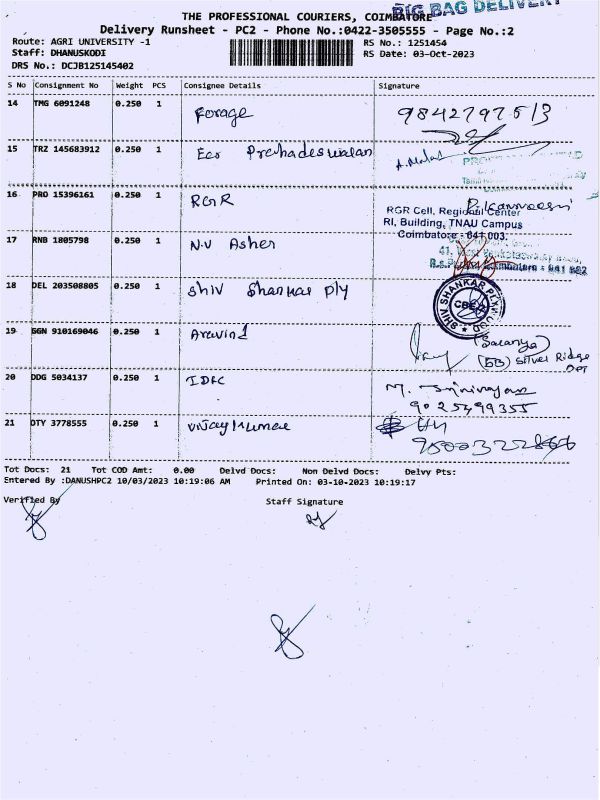 BIG BAG DELIVERY
THE PROFESSIONAL COURIERS, COIMBATORE
Delivery Runsheet - PC2 - Phone No.:0422-3505555 - Page No.:2
Route: AGRI UNIVERSITY -1 RS No.: 1251454
Staff: DHANUSKODI RS Date: 03-Oct-2023
DRS No.: DCJB125145402
S No Consignment No Weight PCS Consignee Details Signature
14 TMG 6091248 0.250 1 Forage 9842797513
15 TRZ 145683912 0.250 1
16 PRO 15396161 0.250 1 RGR
RGR Cell, Regional Center
RI, Building, TNAU Campus
Coimbatore - 641 003.
17 RNB 1805798 0.250 1 N.V Asher
18 DEL 203508805 0.250 1 Shiv Shankar Ply
SHIV SHANKAR PLYWOOD
CBE
19 GGN 910169046 0.250 1 Aravind (Saranya)
(5B) Silver Ridge
20 DDG 5034137 0.250 1 IDFC M. Srinivasan
9025499355
21 DTY 3778555 0.250 1 Vijay Kumar
Tot Docs: 21 Tot COD Amt: 0.00 Delvd Docs: Non Delvd Docs: Delvy Pts:
Entered By :DANUSHPC2 10/03/2023 10:19:06 AM Printed On: 03-10-2023 10:19:17
Verified By Staff Signature